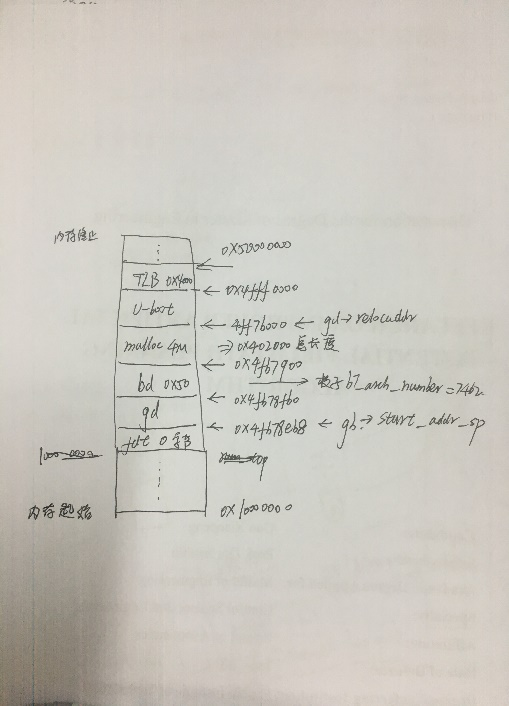 内存终止
0x50000000
TLB 0x4000
0x4fff0000
U-boot
4ff7b000 ← gd→relocaddr
malloc 4M
⇒0x402000 总长度
0x4fb7900
bd 0x50
bi_arch_number=7462
0x4fb78fb0
gd
0x4fb78eb8 ← gb→start_addr_sp
fdt 0字节
内存起始
0x1000000